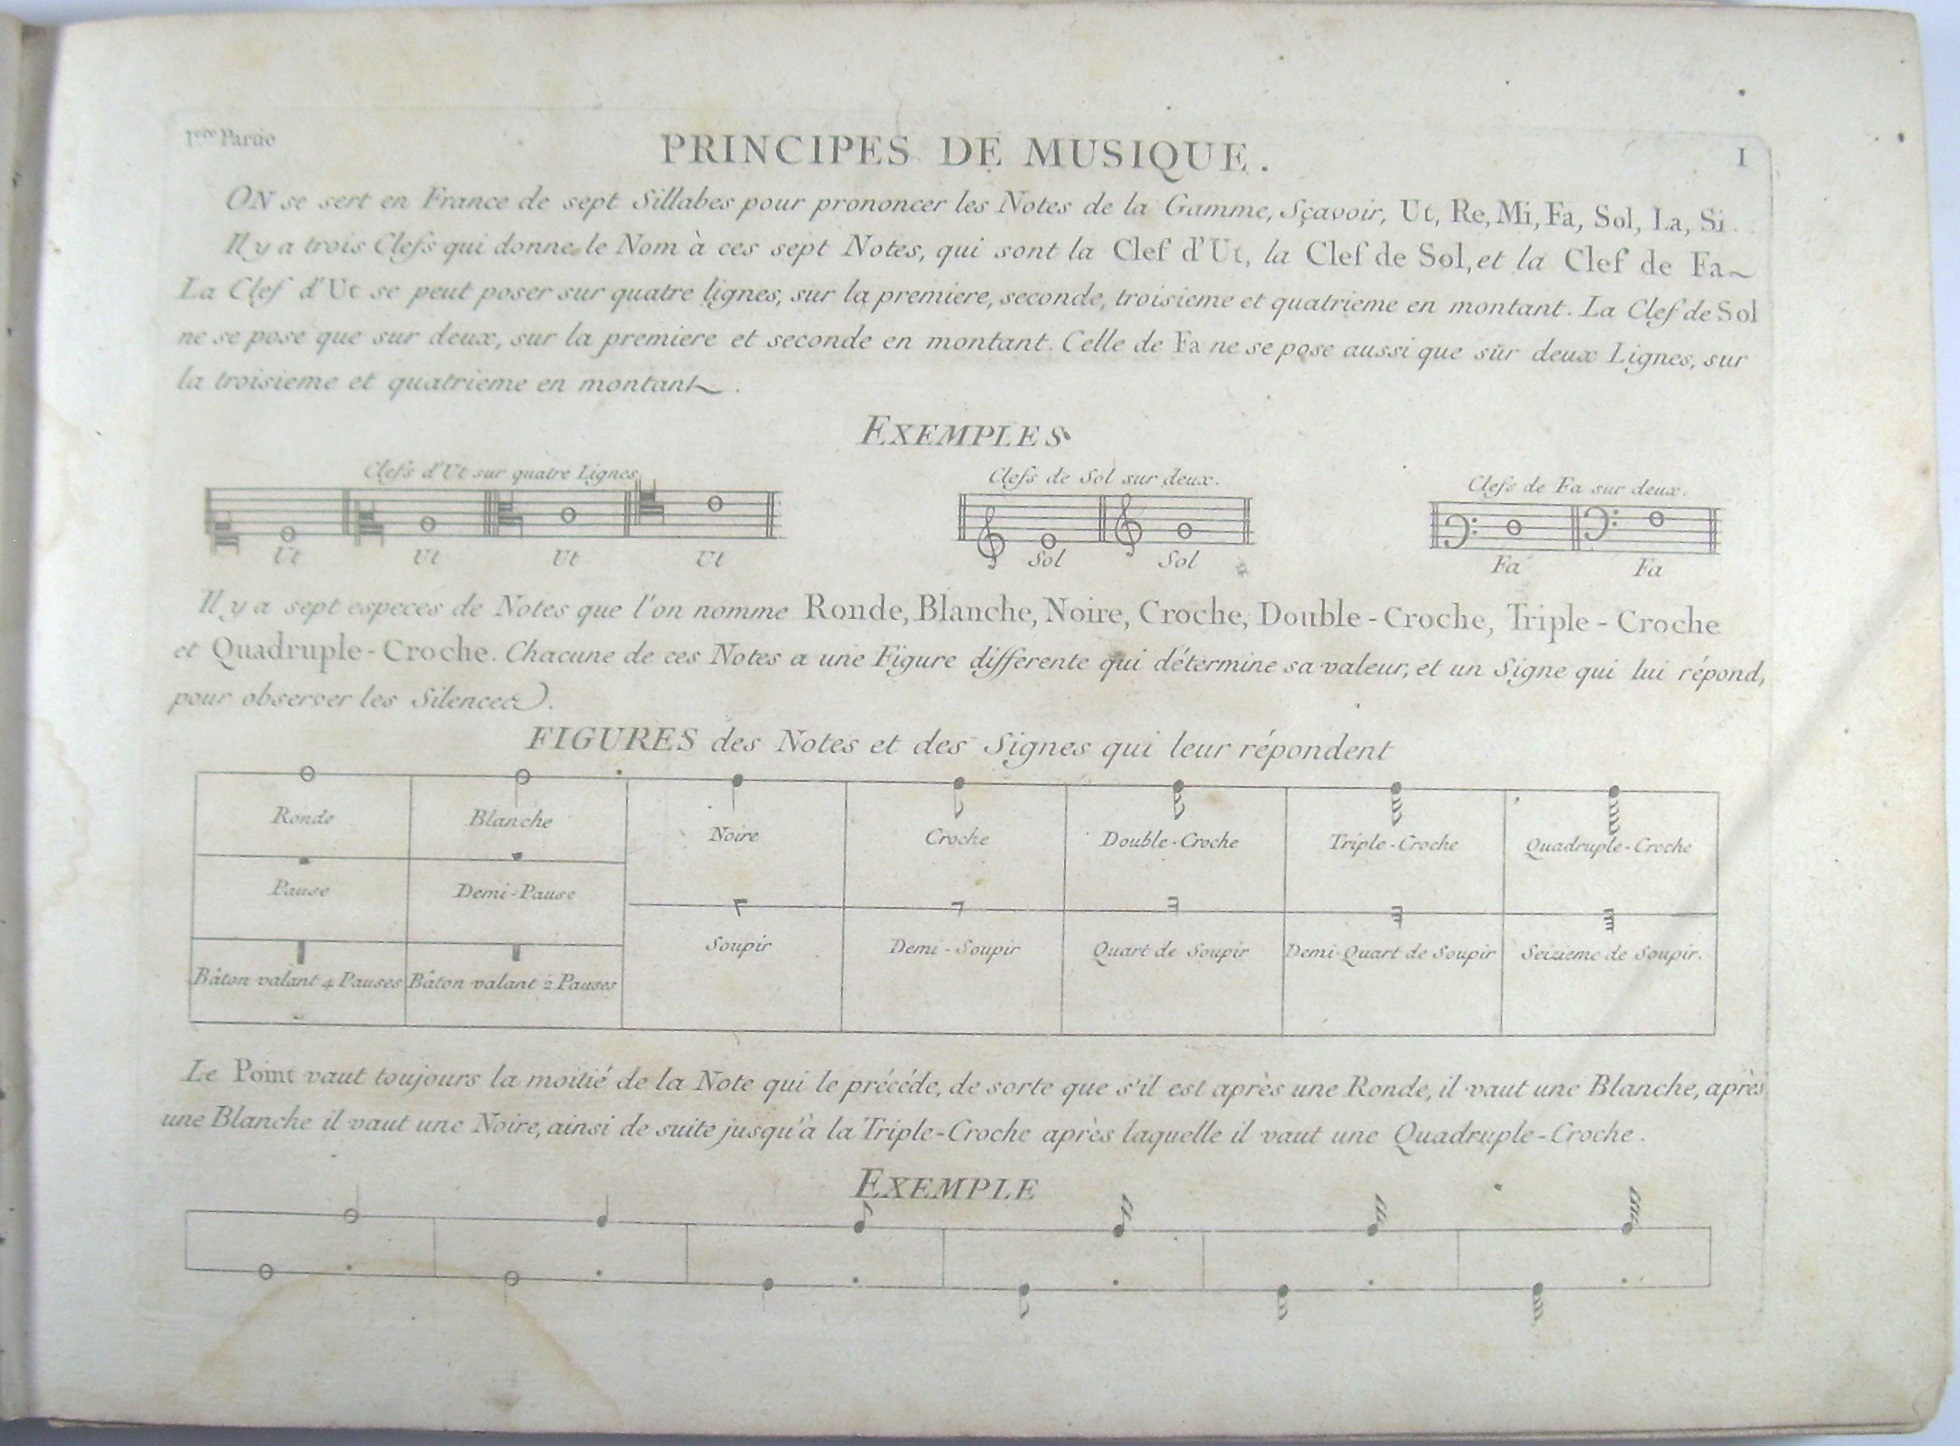 1.ere Partie
PRINCIPES DE MUSIQUE.
1
ON se sert en France de sept Sillabes pour prononcer les Notes de la Gamme, Sçavoir, Ut, Re, Mi, Fa, Sol, La, Si.
Il y a trois Clefs qui donne le Nom à ces sept Notes, qui sont la Clef d'Ut, la Clef de Sol, et la Clef de Fa
La Clef d'Ut se peut poser sur quatre lignes, sur la premiere, seconde, troisieme et quatrieme en montant. La Clef de Sol
ne se pose que sur deux, sur la premiere et seconde en montant. Celle de Fa ne se pose aussi que sur deux Lignes, sur
la troisieme et quatrieme en montant.
EXEMPLES
Clefs d'Ut sur quatre Lignes
Clefs de Sol sur deux.
Clefs de Fa sur deux.
Ut Ut Ut Ut
Sol Sol
Fa Fa
Il y a sept especes de Notes que l'on nomme Ronde, Blanche, Noire, Croche, Double-Croche, Triple-Croche
et Quadruple-Croche. Chacune de ces Notes a une Figure differente qui détermine sa valeur, et un Signe qui lui répond,
pour observer les Silences.
FIGURES des Notes et des Signes qui leur répondent
Ronde Blanche Noire Croche Double-Croche Triple-Croche Quadruple-Croche
Pause Demi-Pause
Soupir Demi-Soupir Quart de Soupir Demi-Quart de Soupir Seizieme de Soupir.
Bâton valant 4 Pauses Bâton valant 2 Pauses
Le Point vaut toujours la moitié de la Note qui le précéde, de sorte que s'il est après une Ronde, il vaut une Blanche, après
une Blanche il vaut une Noire, ainsi de suite jusqu'à la Triple-Croche après laquelle il vaut une Quadruple-Croche.
EXEMPLE